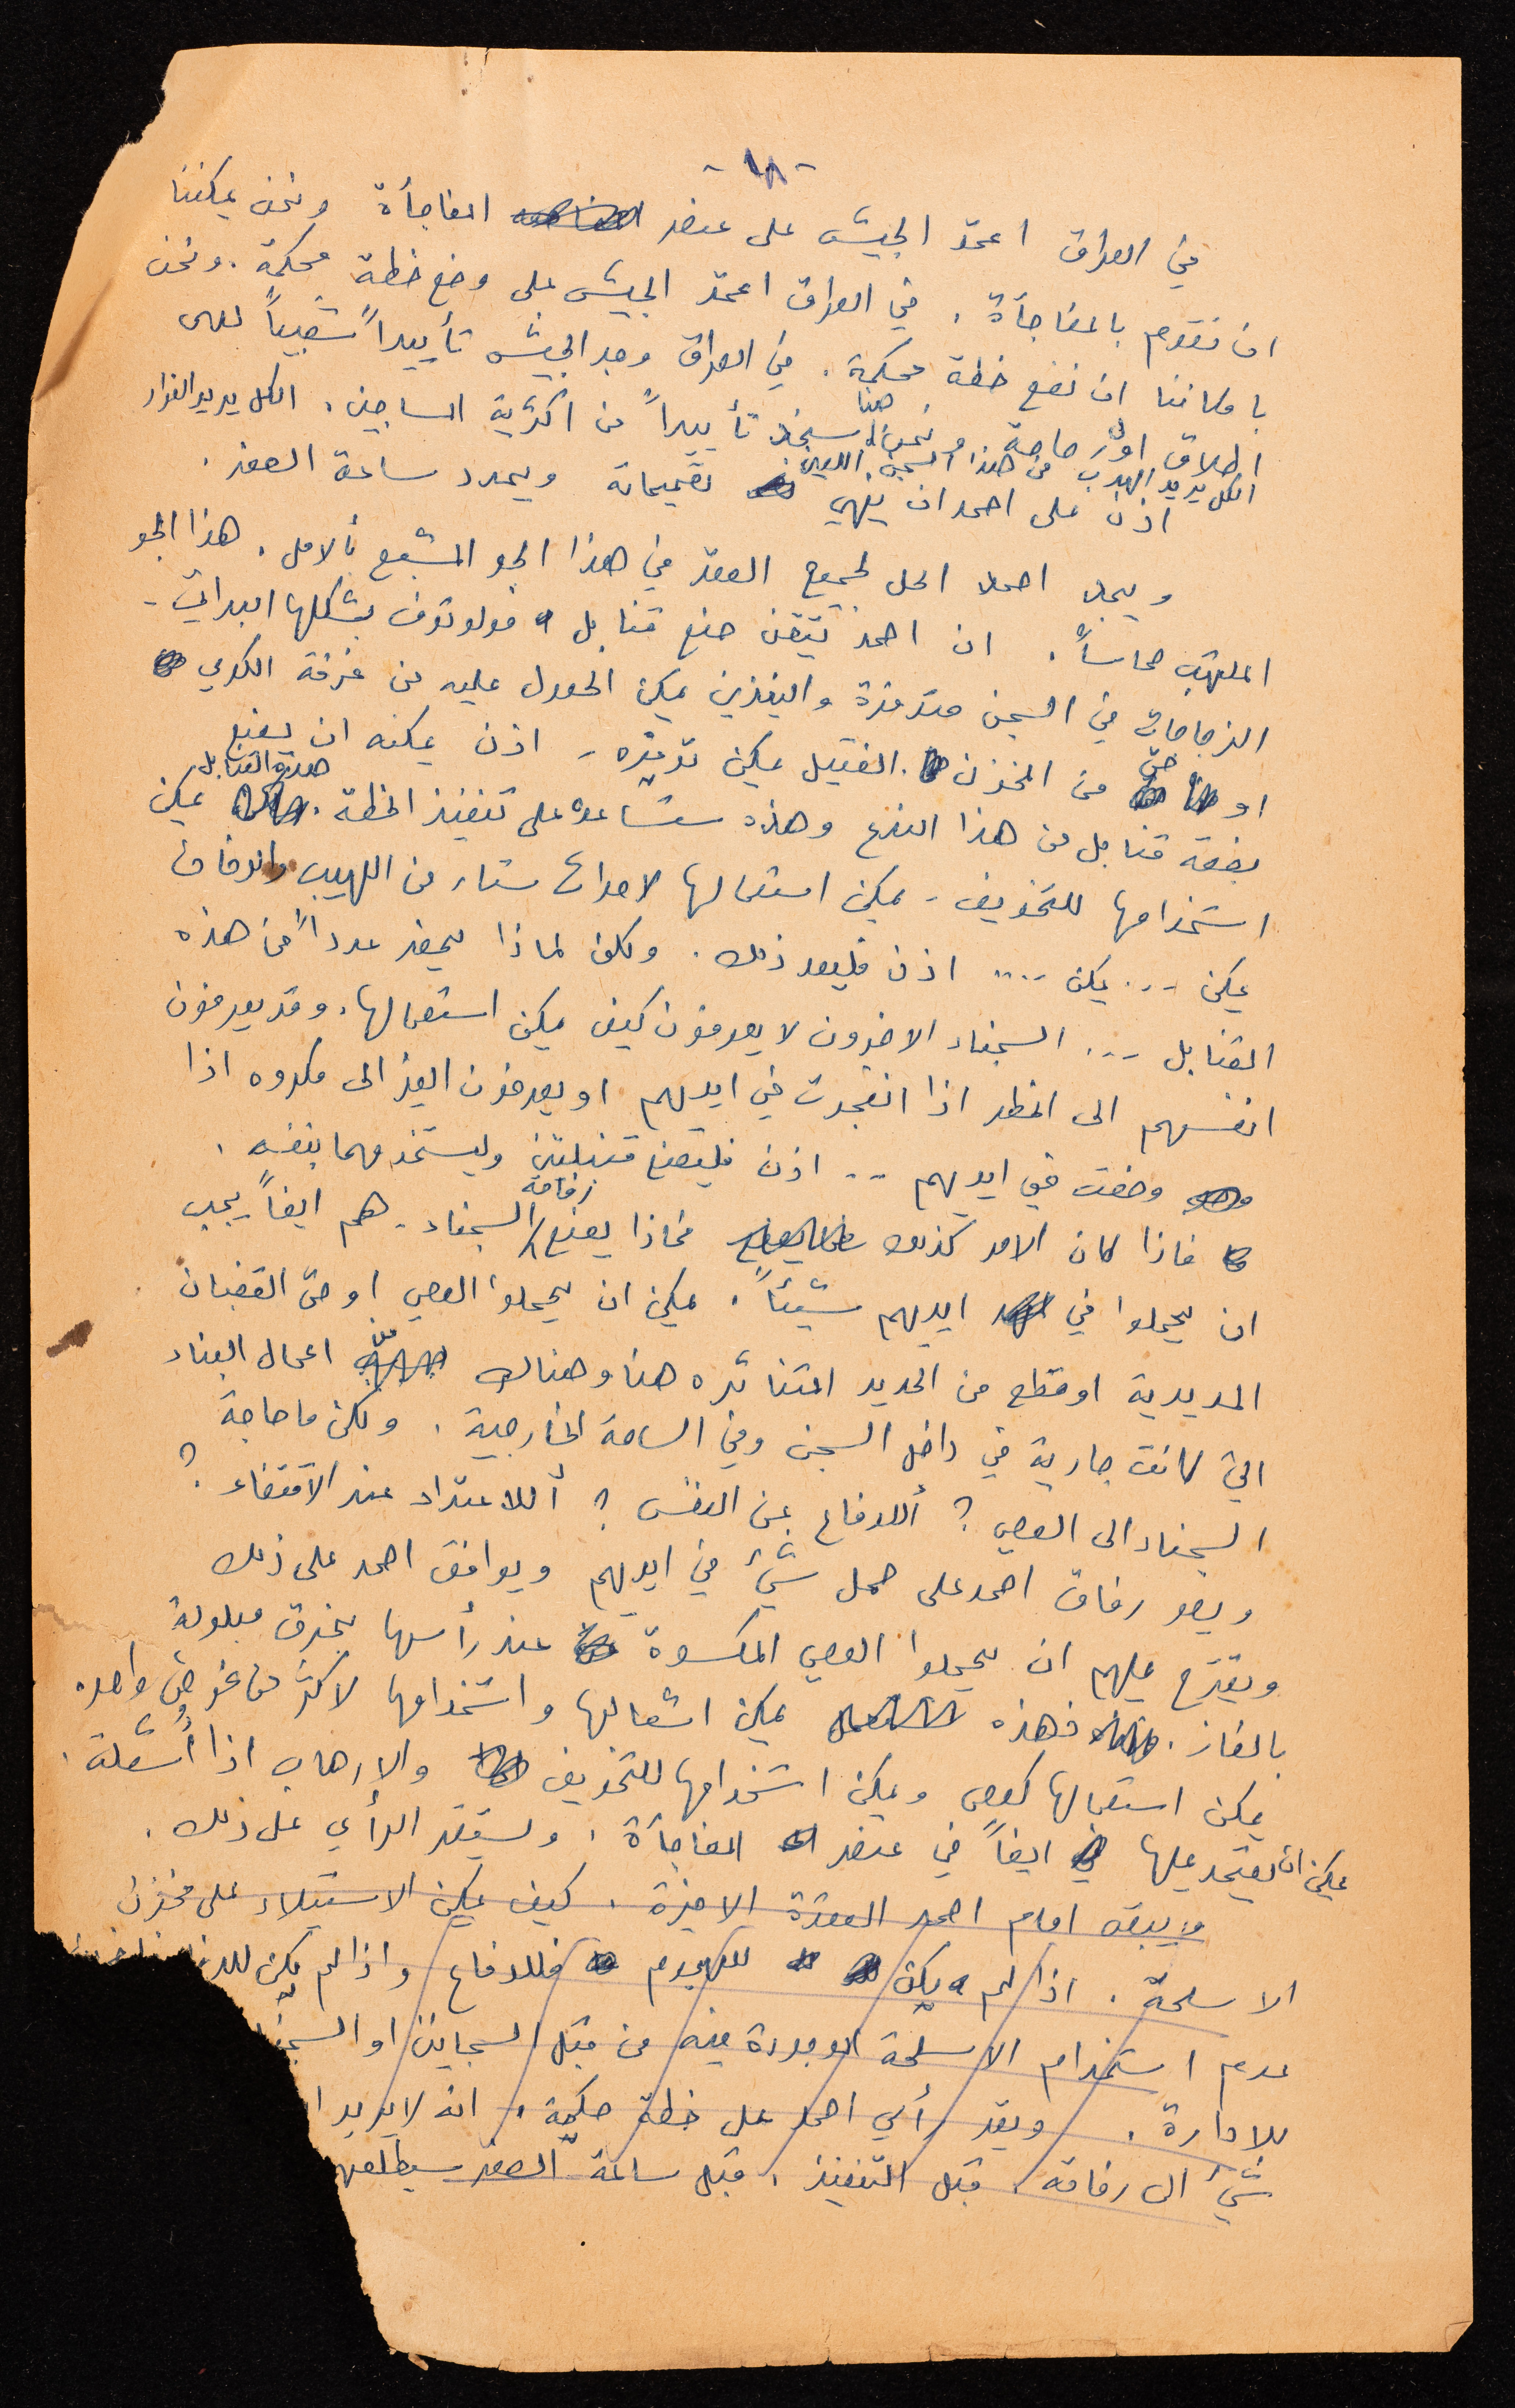 - ١٨ -
في العراق اعتمد الجيش على عنصر المفاجأة ونحن يمكننا
ان نقوم بالمفاجأة . في العراق اعتمد الجيش على وضع خطة محكمة . ونحن
بامكاننا ان نضع خطة محكمة . في العراق وجد الجيش تأييداً شعبياً لدى
اطلاق اول رصاصة . ونحن هنا سنجد تأييداً من اكثرية المساجين . الكل يريد الفرار
الكل يريد الهرب من هذا السجن اللعين
اذن على احمد ان ينهي تصميماته ويحدد ساعة الصفر .
ويجد احمد الحل لجميع العقد في هذا الجو المشبع بالامل . هذا الجو
الملتهب حماساً . ان احمد يتقن صنع قنابل مولوتوف بشكلها البدائي -
الزجاجات في السجن متوفرة والبنزين يمكن الحصول عليه من غرفة الكوي
او حتى من المخزن . الفتيل يمكن توفيره - اذن يمكنه ان يصنع
بضعة قنابل من هذا النوع وهذه ستساعد على تنفيذ الخطة . هذه القنابل يمكن
استخدامها للتخويف - يمكن استعمالها لاحداث ستار من اللهيب والدخان
يمكن ... يمكن .... اذن فليعد ذلك . ولكن لماذا يحضر عدداً من هذه
القنابل ... السجناء الاخرون لا يعرفون كيف يمكن استعمالها . وقد يعرضون
انفسهم الى الخطر اذا انفجرت في ايديهم او يعرضون الغير الى مكروه اذا
وضعت في ايديهم .. اذن فليصنع قنبلتين وليستخدمهما بنفسه .
فاذا كان الامر كذلك فماذا يصنع رفاقه السجناء - هم ايضاً يجب
ان يحملوا في ايديهم شيئاً . يمكن ان يحملوا العصي او حتى القضبان
الحديدية او قطع من الحديد المتناثره هنا وهناك من اعمال البناء
التي كانت جارية في داخل السجن وفي الساحة الخارجية . ولكن ما حاجة
السجناء الى العصي ؟ أللدفاع عن النفس ؟ أللاعتداء عند الاقتضاء ؟
ويصر رفاق احمد على حمل شيء في ايديهم ويوافق احمد على ذلك
ويقترح عليهم ان يحملوا العصي المكسوة عند رأسها بخرق مبلولة
بالغاز . فهذه يمكن اشعالها واستخدامها لاكثر من غرض واحد
يمكن استعمالها كعصي ويمكن استخدامها للتخويف والارهاب اذا أشعلت .
يمكن ان يعتمد عليها ايضاً في عنصر المفاجأة . ويستقر الرأي على ذلك .
ويبقى امام احمد العقدة الاخيرة . كيف يمكن الاستيلاء على مخزن
الاسلحة . اذا لم يكن للهجوم فللدفاع واذا لم يكن
عدم استخدام الاسلحة الموجودة فيه من قبل السجانين او
للادارة . ويقر رأي احمد على خطة حكيمة . انه لا يريد
شيء الى رفاقه قبل التنفيذ . قبل ساعة الصفر سيطلعهم